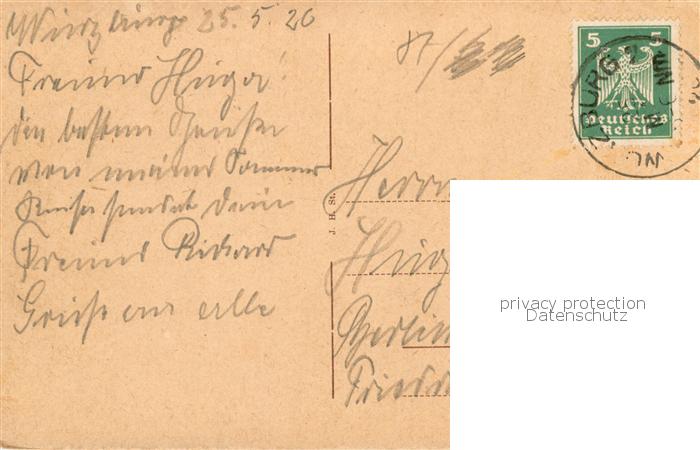 Würzburg 25.5.26
Freund Hugo!
die besten Grüße
von meiner Sommer
Reise sendet dein
Freund Richard
Gruß an alle
5 5
Deutsches
Reich
J. H. St.
Herrn
Hug
Berlin
Fried
privacy protection
Datenschutz